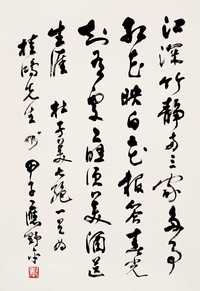 江深竹静两三家多事
红花映白花报答春光
知有处应须美酒送
生涯 杜子美七绝一首为
桂鸣先生书 甲子应野平